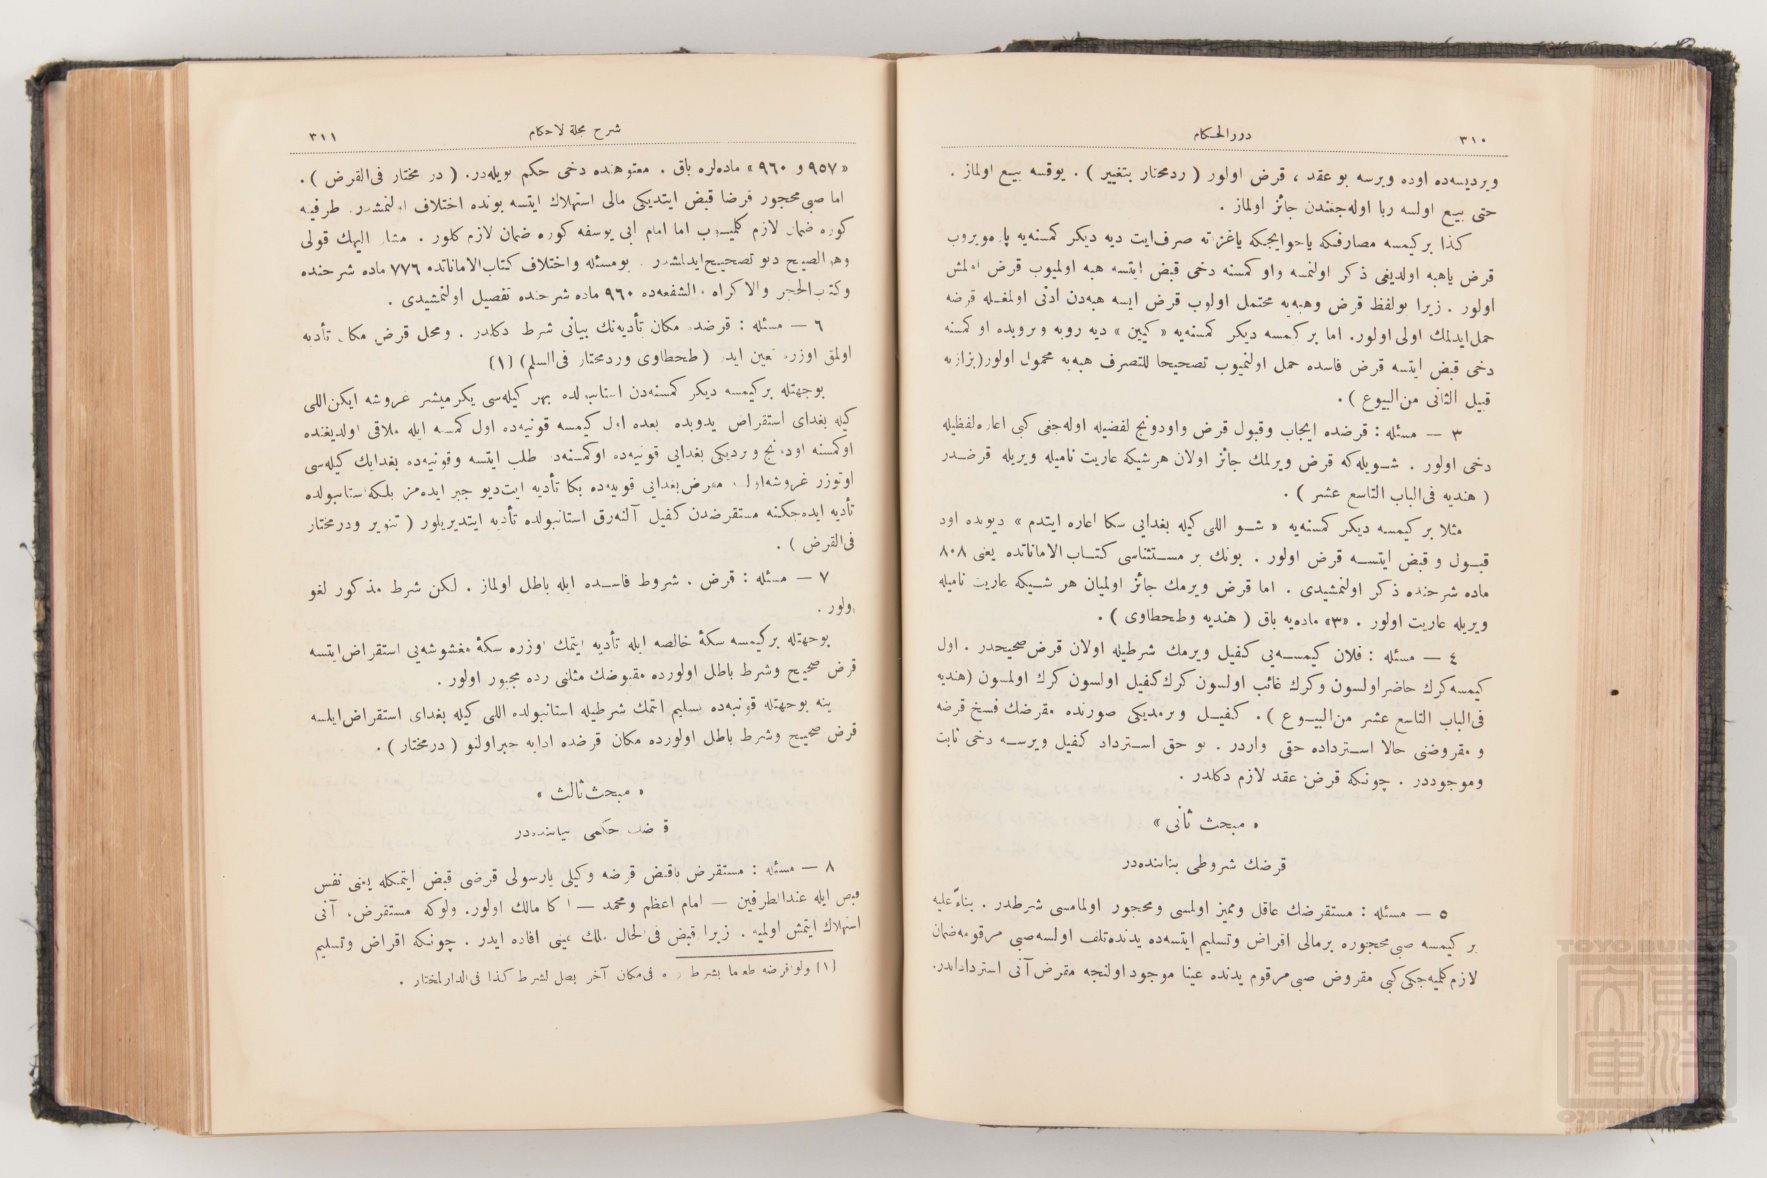 ٣١٠
دررالحكام
ويرديسه‌ده اوده ويرسه بو عقد ، قرض اولور ( ردمحتار بتغيير ) . يوقسه بيع اولماز .
حتى بيع اولسه ربا اوله‌جغندن جائز اولماز .
كذا بركيمسه مصارفكه ياحوايجكه ياغزاته صرف‌ايت ديه ديكر كمسنه‌يه پاره ويروب
قرض ياهبه اولديغى ذكر اولنمسه واو كمسنه دخى قبض ايتسه هبه اولميوب قرض اولمش
اولور . زيرا بولفظ قرض وهبه‌يه محتمل اولوب قرض ايسه هبه‌دن ادنى اولمغله قرضه
حمل‌ايدلمك اولى اولور. اما بر كمسه ديكر كمسنه‌يه « كيين » ديه روبه ويروبده او كمسنه
دخى قبض ايتسه قرض فاسده حمل اولنميوب تصحيحا للتصرف هبه‌يه محمول اولور(بزازيه
قبيل الثانى من‌البيوع ) .
٣ — مسئله : قرضده ايجاب وقبول قرض واودونج لفضيله اوله‌جغى كبى اعاره لفظيله
دخى اولور . شويله‌كه قرض ويرلمك جائز اولان هرشيكه عاريت ناميله ويريله قرضدر
( هنديه فى‌الباب التاسع عشر ) .
مثلا بر كيمسه ديكر كمسنه‌يه « شو اللى كيله بغدايى سكا اعاره ايتدم » ديوبده اود
قبول و قبض ايتسه قرض اولور . بونك بر مستثناسى كتاب الاماناتده يعنى ٨٠٨
ماده شرحنده ذكر اولنمشيدى . اما قرض ويرمك جائز اولميان هر شيكه عاريت ناميله
ويريله عاريت اولور . «٣» ماده‌يه باق ( هنديه وطحطاوى ) .
٤ — مسئله : فلان كيمسه‌يى كفيل ويرمك شرطيله اولان قرض صحيحدر . اول
كيمسه كرك حاضراولسون وكرك غائب اولسون كرك كفيل اولسون كرك اولمسون (هنديه
فى‌الباب التاسع عشر من‌البيوع ) . كفيل ويرمديكى صورتده مقرضك فسخ قرضه
و مقروضنى حالا استرداده حقى واردر . بو حق استرداد كفيل ويرسه دخى ثابت
وموجوددر . چونكه قرض عقد لازم دكلدر .
« مبحث ثانى »
قرضك شروطى بياننده‌در
٥ — مسئله : مستقرضك عاقل ومميز اولمسى ومحجور اولمامسى شرطدر . بناءً عليه
بر كيمسه صبى محجوره برمالى اقراض وتسليم ايتسه‌ده يدنده تلف اولسه صبى مرقومه ضمان
لازم كليه‌جكى كبى مقروض صبى مرقوم يدنده عينا موجود اولنجه مقرض آنى استرداد ايدر.
شرح مجلة لاحكام
٣١١
« ٩٥٧ و ٩٦٠ » ماده‌لره باق . معتوهنده دخى حكم بويله‌در. ( در مختار فى‌القرض ) .
اما صبى محجور قرضا قبض ايتديكى مالى استهلاك ايتسه بونده اختلاف اولنمشدر. طرفينه
كوره ضمان لازم كلميوب اما امام ابى يوسفه كوره ضمان لازم كلور . مشار اليهك قولى
وهو الصحيح ديو تصحيح‌ايدلمشدر . بومسئله واختلاف كتاب‌الاماناتده ٧٧٦ ماده شرحنده
وكتاب‌الحجر والاكراه والشفعه‌ده ٩٦٠ ماده شرحنده تفصيل اولنمشيدى .
٦ — مسئله : قرضده مكان تأديه‌نك بيانى شرط دكلدر . ومحل قرض مكان تأديه
اولمق اوزره تعين ايدر ( طحطاوى وردمختار فى‌السلم) [١]
بوجهتله بركيمسه ديكر كمسنه‌دن استانبولده بهر كيله‌سى يكرميشر غروشه ايكن‌اللى
كيله بغداى استقراض ايدوبده بعده اول كيمسه قونيه‌ده اول كمسه ايله ملاقى اولديغنده
اوكمسنه اودنج ويرديكى بغدايى قونيه‌ده اوكمسنه‌دن طلب ايتسه وقونيه‌ده بغدايك كيله‌سى
اوتوزر غروشه اولسه مقرض بغدايى قونيه‌ده بكا تأديه ايت‌ديو جبر ايده‌مز بلكه استانبولده
تأديه ايده‌جكنه مستقرضدن كفيل آلنه‌رق استانبولده تأديه ايتديريلور ( تنوير ودرمختار
فى‌القرض ) .
٧ — مسئله : قرض ، شروط فاسده ايله باطل اولماز . لكن شرط مذكور لغو
اولور .
بوجهتله بركيمسه سكۀ خالصه ايله تأديه ايتمك اوزره سكۀ مغشوشه‌يى استقراض‌ايتسه
قرض صحيح وشرط باطل اولورده مقبوضك مثلنى رده مجبور اولور .
ينه بوجهتله قونيه‌ده تسليم ايتمك شرطيله استانبولده اللى كيله بغداى استقراض‌ايلسه
قرض صحيح وشرط باطل اولورده مكان قرضده ادايه جبراولنو ( درمختار ) .
« مبحث ثالث »
قرضك حكمى بياننده‌در
٨ — مسئله : مستقرض ياقبض قرضه وكيلى يارسولى قرضى قبض ايتمكله يعنى نفس
قبض ايله عندالطرفين — امام اعظم ومحمد — اكا مالك اولور. ولوكه مستقرض، آنى
استهلاك ايتمش اولميه . زيرا قبض فى‌الحال ملك عينى افاده ايدر . چونكه اقراض وتسليم
[١] ولو اقرضه طعاما بشرط رده فى‌مكان آخر بطل لشرط كذا فى‌الدارلمختار .